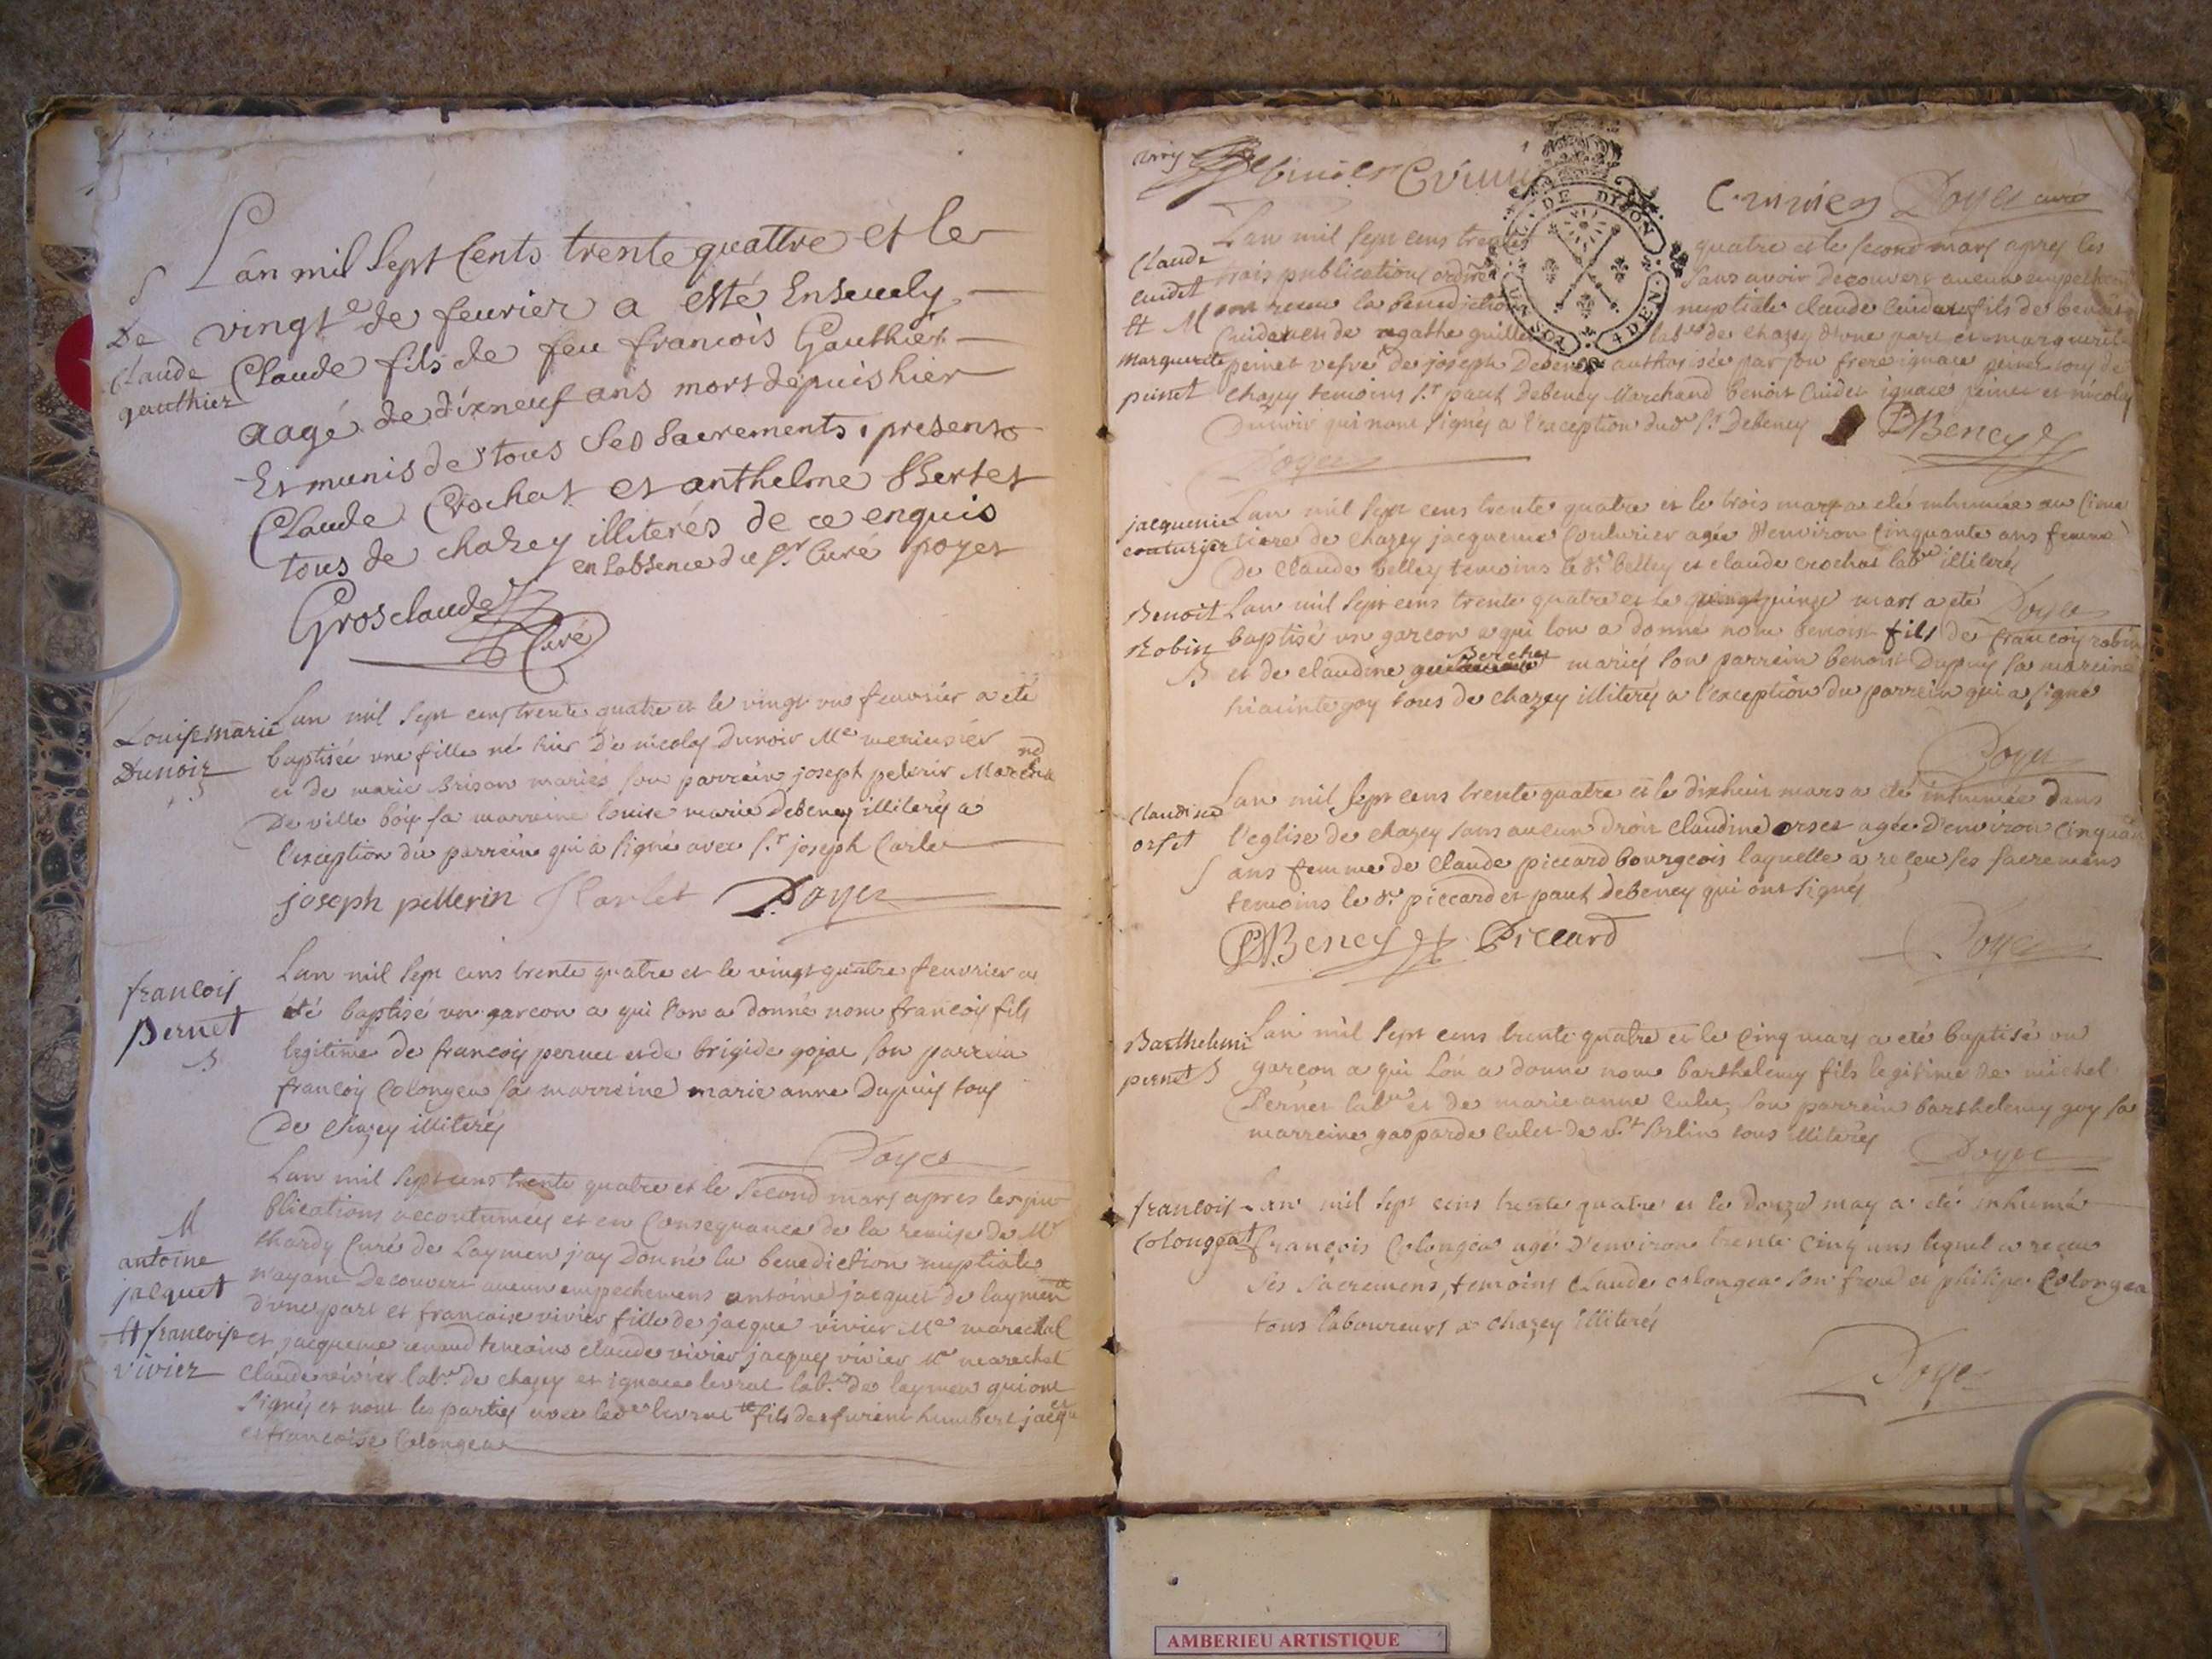 Lân mil Sept Cents trente quattre et le
S
De
Claude
gauthier
vingt de feuvrier a esté Enseuely
Claude fils de feu francois Gauthier
aagé de dixneuf ans mort depuis hier
Et munis de tous Ses Sacrements, presents
Claude Crochat et anthelme Bertet
tous de chazey illiterés de ce enquis
en l'absence du Sr. Curé poyet
Grosclaude
Curé
Louise marie
Dunoir
Lan mil sept cens trente quatre et le vingt un feuvrier a eté
baptisée une fille né hier De nicolas Dunoir Me menusier
et de marie Brison mariés son parrein joseph pelerin March
nd
De ville bois sa marraine louise marie Debeney illiterés a
l'exception du parrein qui a signé avec Sr. joseph Carlet
joseph pellerin J Carlet Poyet
francois
pernet
B
Lan mil sept cens trente quatre et le vingt quatre feuvrier a
eté baptisé un garcon a qui l'on a donné nom francois fils
legitime de francois pernet et de brigide gojat son parrein
francois Colongea sa marreine marie anne Dupuis tous
De chazey illiterés
Poyet
M
antoine
jacquet
Et francoise
vivier
Lan mil sept cens trente quatre et le second mars apres les pu
blications accoutumées et en Consequance de la remise de Mr
thardy Curé de Laymen j'ay donné la benediction nuptiale
n'ayant Decouvert aucun empechemens antoine jacquet de laymen
d'une part et francoise vivier fille de jacque vivier Me marechal
et jacqueme renaud temoins claude vivier jacques vivier Me marechal
claude vivier labr. de chazey et ignace levrat labr. de laymen qui ont
signés et nont les parties avec led. levrat fils de furent humbert jacq
et francoise Colongea
Poyet curé
Claude
cuidet
Et M
marguerite
peinet
Lan mil sept cens trente quatre et le second mars apres les
trois publications ordin sans avoir decouvert aucun empechem
ont receu la benediction nuptiale claude cuidet fils de benoit
Cuidet et de agathe guillet labr de chazey d'une part et marguerite
peinet vefve de joseph Debeney authorisée par son frere ignace peinet tous de
chazey temoins Sr. paul Debeney Marchand benoit Cuidet ignace peinet et nicolas
Dunoir qui nont signés a l'exception dud Sr. Debeney
DBeney
Poyet
jacqueme
couturier
Lan mil sept cens trente quatre et le trois mars a eté inhumée au Cime
tiere de chazey jacqueme Couturier agée d'environ Cinquante ans femme
De claude belley temoins led. belley et claude crochat labr illiterés
Poyet
Benoit
Robin
B
Lan mil sept cens trente quatre et le quinze mars a eté
baptisé un garcon a qui lon a donné nom benoist fils de francois robin
et de claudine Berchet mariés son parrein benoist Dupuis sa mareine
hiacinte goy tous de chazey illiterés a l'exception du parrein qui a signé
Poyet
Claudine
orset
S
Lan mil sept cens trente quatre et le dixhuit mars a eté inhumée dans
l'eglise de chazey sans aucun droit Claudine orset agée d'environ Cinquan
ans femme de Claude piccard bourgeois laquelle a reçeu ses sacremens
temoins led. piccard et paul debeney qui ont signés
DBeney Piccard
Poyet
Barthelemi
pernet B
Lan mil sept cens trente quatre et le cinq mars a eté baptisé un
garcon a qui Lon a donné nom barthelemy fils legitime de michel
Pernet labr et de marie anne Culet, son parrein barthelemy goy sa
marreine gasparde culet de St Sorlin tous illiterés
Poyet
francois
Colongeat
Lan mil sept cens trente quatre et le douze may a eté inhumé
françois Colongea agé d'environ trente cinq ans lequel a reçeu
ses sacremens, temoins claude colongea son frere et philipe Colongea
tous laboureurs a chazey illiterés
Poyet
DE DIJON
DEN
AMBERIEU ARTISTIQUE